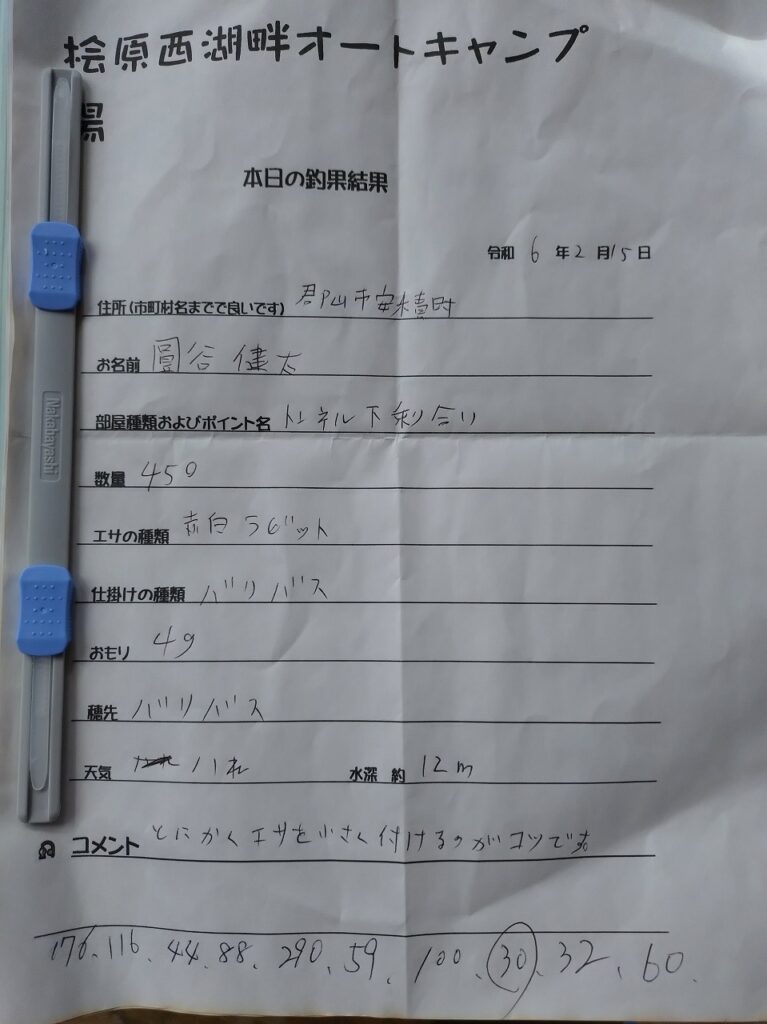 桧原西湖畔オートキャンプ
場
本日の釣果結果
令和 6 年 2 月 15 日
住所(市町村名までで良いです) 郡山市安積町
お名前 圓谷 健太
部屋種類およびポイント名 トンネル下乗合い
数量 450
エサの種類 赤白ラビット
仕掛けの種類 バリバス
おもり 4g
穂先 バリバス
天気 ハれ 水深 約 12m
コメント とにかくエサを小さく付けるのがコツです
176、116、44、88、290、59、100、30、32、60
Nakabayashi